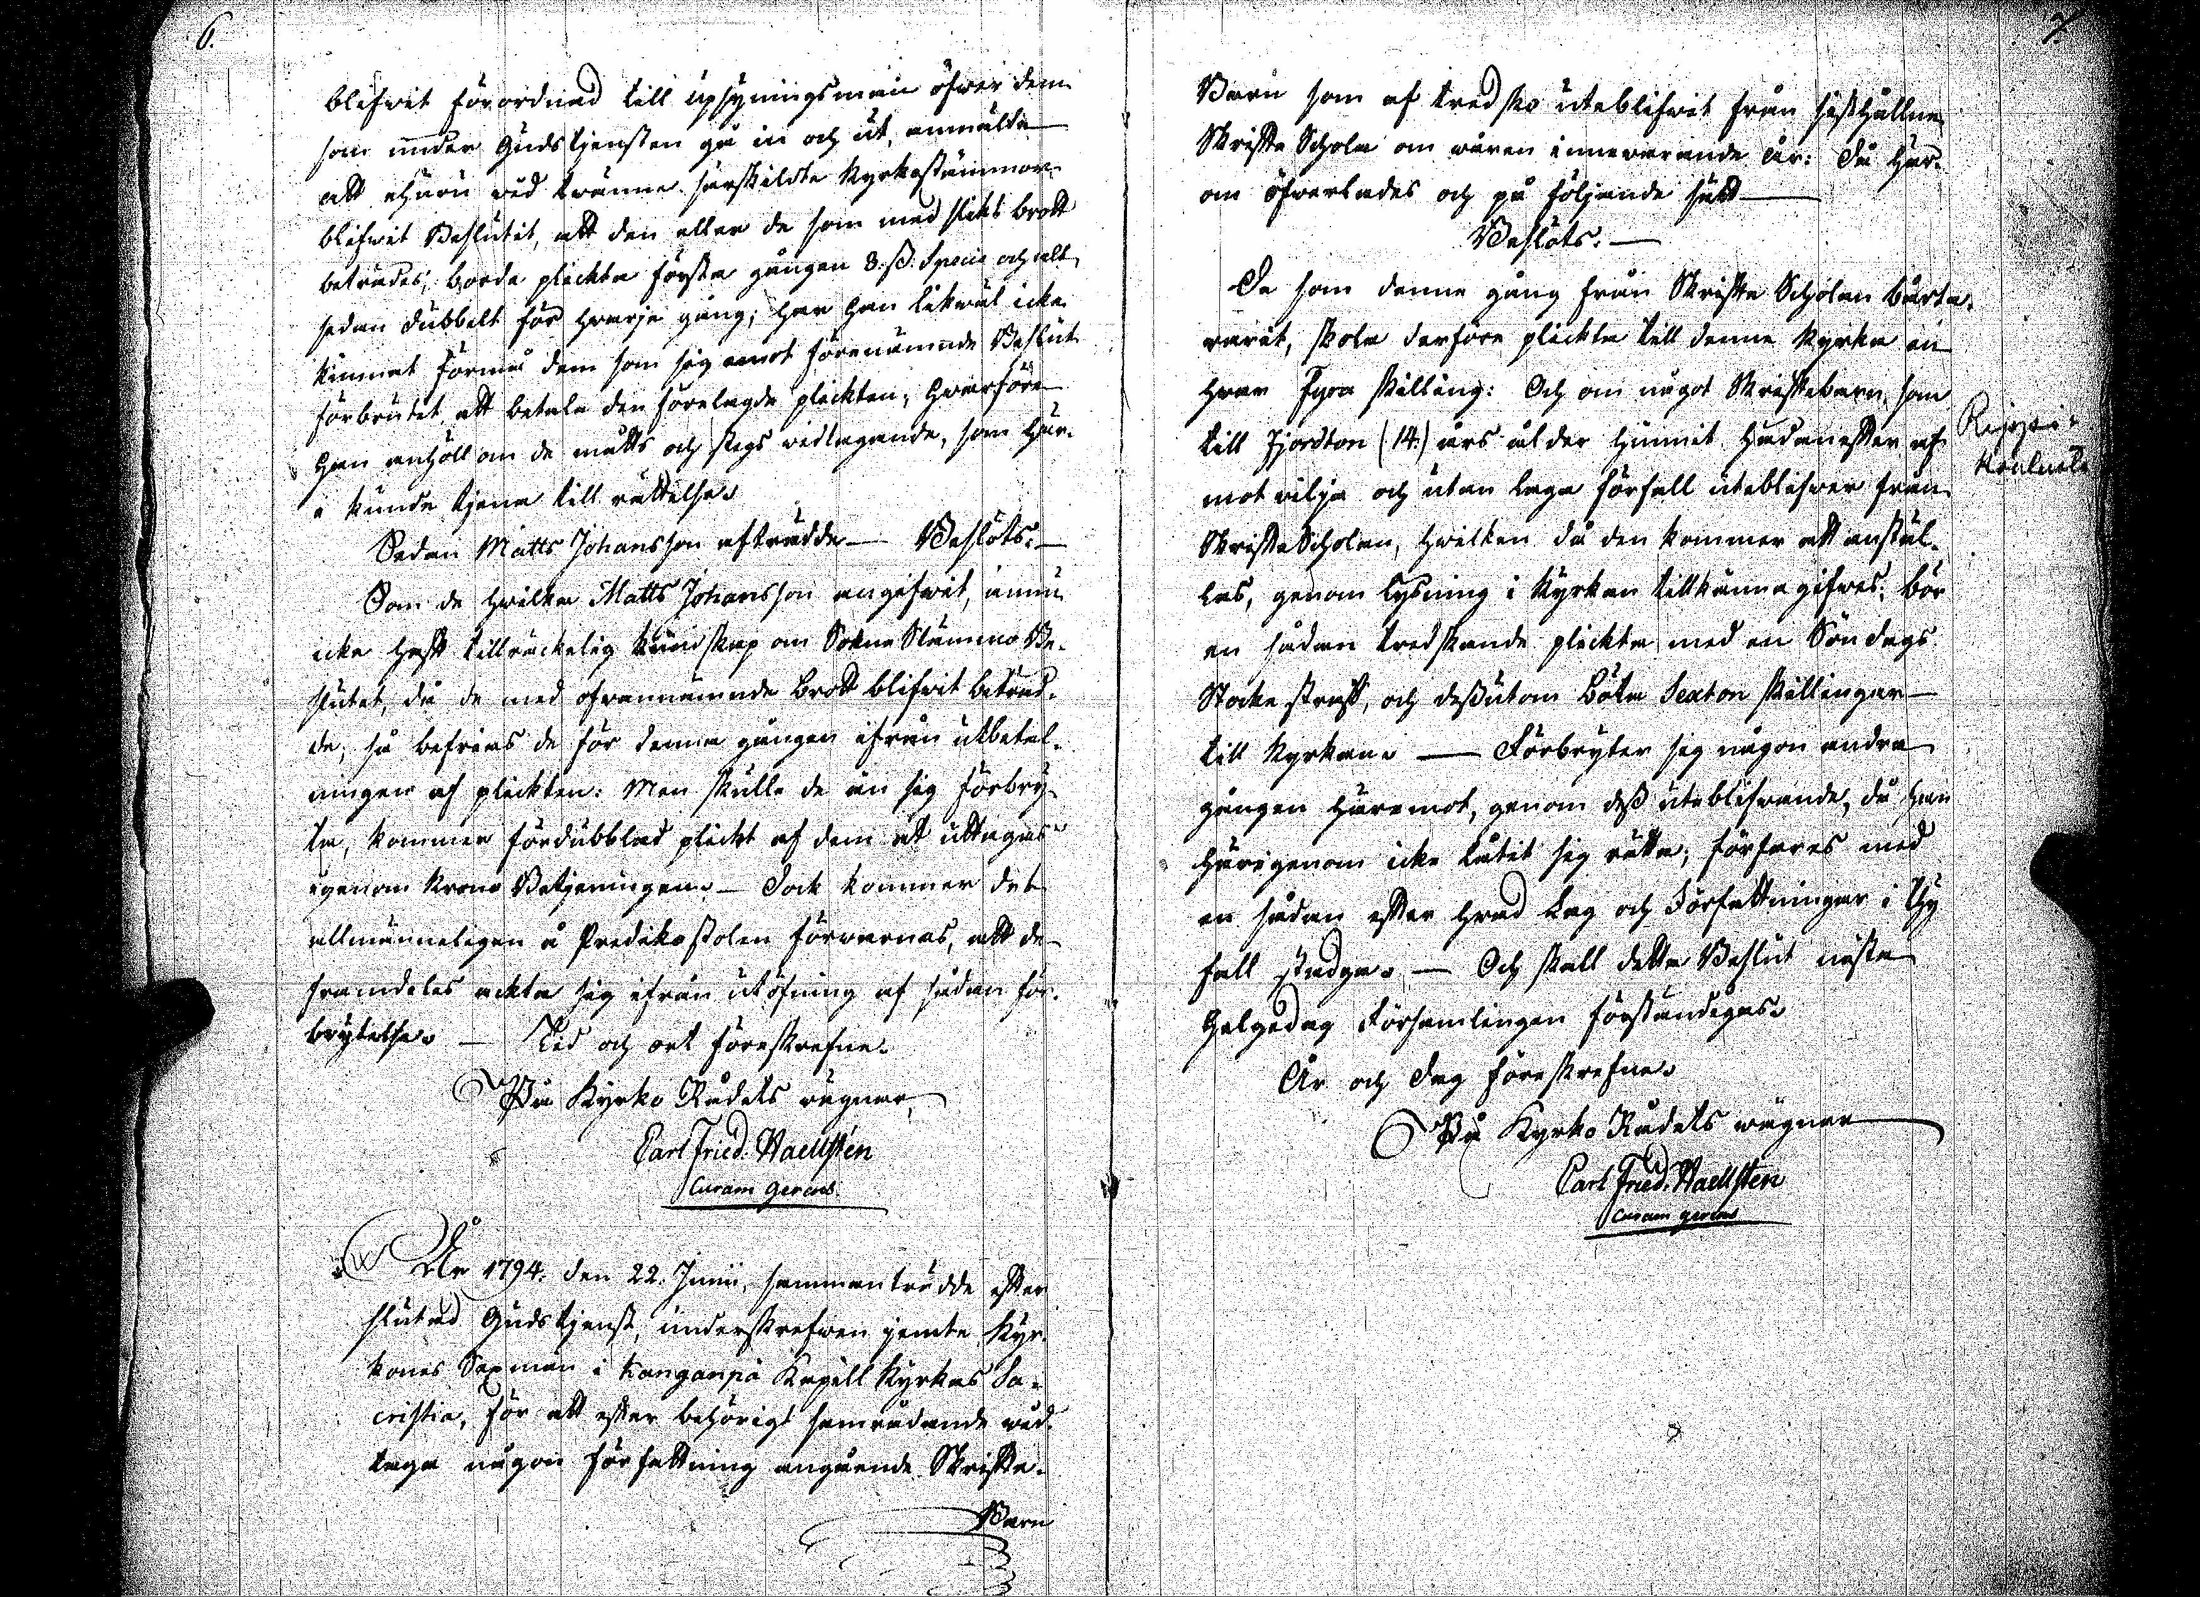 6.
blifwit förordnad till upsyningsman öfwer dem
som under Gudstjensten gå in och ut, anmälde
att ehuru wid twänne särskildte Kyrkostämmor
blifwit Beslutit, att den eller de som med slikt brott
beträdes, borde plickta första gången 8. ß. Specie och alt
sedan dubbelt för hwarje gång; har han likwäl icke
kunnat förmå dem som sig emot förenämnde Beslut
förbrutet att betala den förelagde plickten; hwarföre
han anhöll om de måtts och stegs widtagande, som här-
i kunde tjena till rättelse.
Sedan Matts Johansson afträdde — Beslöts: —
Som de hwilka Matts Johansson angifwit, ännu
icke haft tillräckelig kundskap om Sokne Stämmo Be-
slutet, då de med ofwannämnde brott blifwit beträd-
de, så befrias de för denna gången ifrån utbetal-
ningen af plickten: Men skulle de än sig förbry-
ta, kommer fördubblad plickt af dem att uttagas
igenom Krono Betjeningen. — Dock kommer det
allmänneligen å Predikostolen förwarnas, att de
framdeles ackta sig ifrån utöfning af sådan för-
brytelse. — Tid och ort föreskrefne.
På Kyrko Rådets wägnar,
Carl Fried. Wallsten
Curam gerens.
År 1794. den 22. Junii, sammanträdde efter
slutad Gudstjenst, underskrefwen jemte Kyr-
kones Sexmän i Kanganpä Kapell Kyrkas Sa-
cristia, för att efter behörigt samrådande wid-
taga någon författning angående Skrifte-
Barn
7.
Barn som af tredsko uteblifwit från sisthållne
Skrifte Schola om wåren innewarande år: Då här-
om öfwerlades och på följande sätt —
Beslöts. —
De som denne gång från Skrifte Scholan borta
warit, skola derföre plickta till denne Kyrka en
hwar Fyra skilling: Och om något Skriftebarn, som
till Fjorton (14.) års ålder hunnit hädanefter af
mot wilja och utan laga förfall uteblifwer från
Skrifte Scholan, hwilken då den kommer att anstäl-
las, genom lysning i Kyrkan tillkänna gifwes, bör
en sådan tredskande plickta med en Söndags
Stocke straff, och dessutom böta Sexton skillingar
till Kyrkan. — Förbryter sig någon andra
gången häremot, genom dess uteblifwande, då han
härigenom icke låtit sig rätta; förfares med
en sådan efter hwad Lag och Författningar i thy
fall stadga. — Och skall detta Beslut nästa
Helgedag Församlingen förständigas.
År och dag föreskrefne.
På Kyrko Rådets wägnar
Carl Fried. Wallsten
Curam gerens